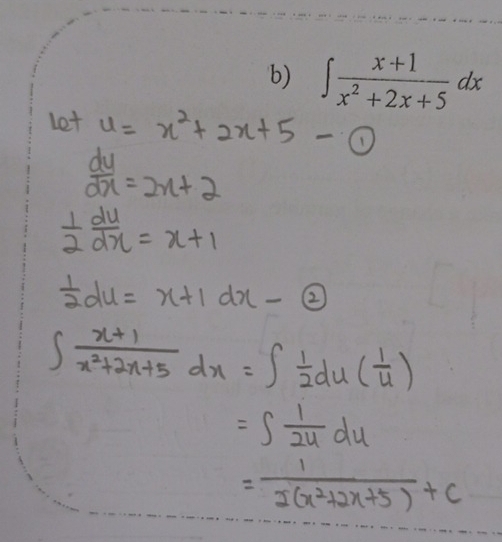 b) ∫ x+1 / x² + 2x + 5 dx
Let u = x² + 2x + 5 - ①
du/dx = 2x + 2
1/2 du/dx = x + 1
1/2 du = x + 1 dx - ②
∫ x+1 / x²+2x+5 dx = ∫ 1/2 du (1/u)
= ∫ 1/2u du
= 1 / 2(x²+2x+5) + c